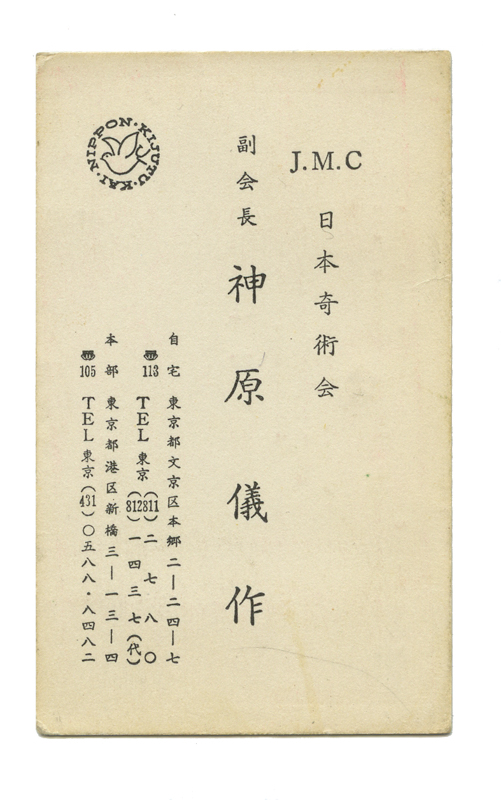 J.M.C
日本奇術会
副会長 神原儀作
自宅 東京都文京区本郷二―二四―七
113 TEL東京(811)二七八〇
(812)一四三七(代)
本部 東京都港区新橋三―一三―四
105 TEL東京(431)〇五八八・八四八二
NIPPON・KIJUTU・KAI